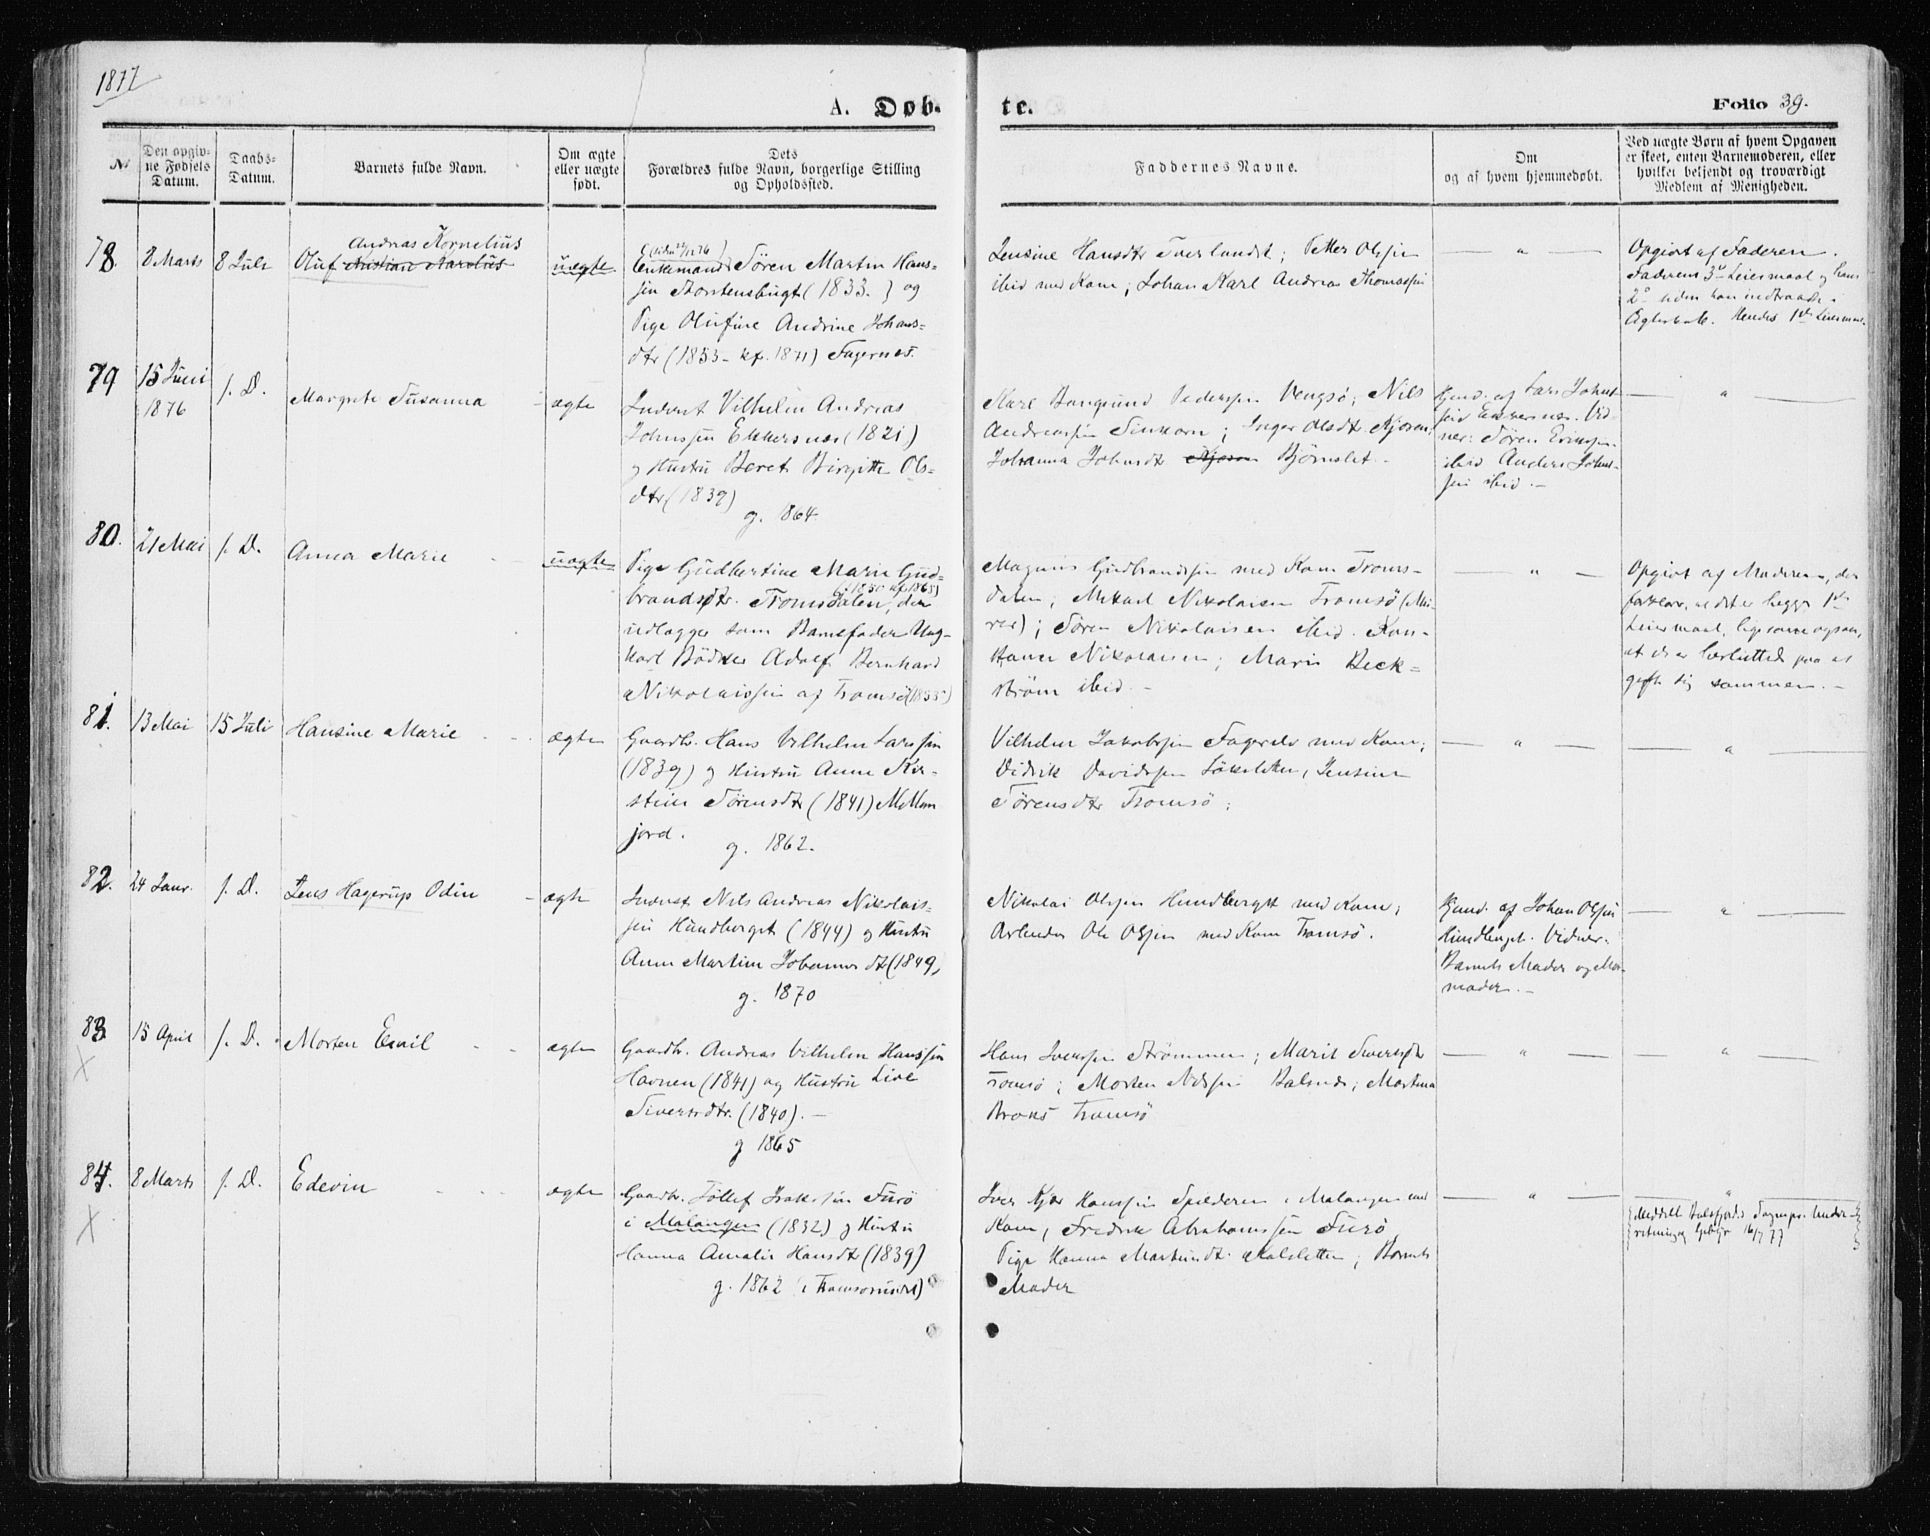 1877
A. Døb-
te.
Folio 39.
No
Den opgiv-
ne Fødsels
Datum.
Daabs-
Datum.
Barnets fulde Navn.
Om ægte
eller uægte
født.
Dets
Forældres fulde Navn, borgerlige Stilling
og Opholdssted.
Faddernes Navne.
Om
og af hvem hjemmedøbt.
Ved uægte Børn af hvem Opgaven
er skeet, enten Barnemoderen, eller
hvilket bekjendt og troværdigt
Medlem af Menigheden.
78.
8 Marts
8 Juli
Andreas Kornelius
Oluf Kristian Karolus
uægte
Enkemand Søren Martin Hans-
sen (1833.) og
Pige Olufine Andrine Johans-
dtr (1853 - kf. 1871) Fagernes.
Jensine Hansdtr Tverlandet; Petter Olsen
ibid med Kone; Johan Karl Andreas Thomassen
— " —
Opgivet af Faderen.
Faderens 3die Leiermaal og hans
2det uden han indtraadte i
Ægteskab. Hendes 1ste Leiermaal.
79
15 Juni
1876
s. D.
Margrete Susanna
ægte
Inderst Vilhelm Andreas
Johnssen Ekkersnæs (1821)
og Hustru Beret Birgitte Ols-
dtr (1839)
g. 1864
Karl Pederssen Vengsø; Nils
Andreassen; Inger Olsdtr Kjosen;
Johanna Johnsdtr Kjosen Bjørnslet -
Hjmd. af Lars Johns-
sen Ekkersnæs. Vid-
ner: Søren Erikssen
ibid Anders Johns-
sen ibid. -
— " —
80.
21 Mai
s. D.
Anna Marie
uægte
Pige Gudbertine Marie Gud-
(1850 kf. 1865)
brandsdtr. Tromsdalen, der
udlægger som Barnefader Ung-
karl Bødker Adolf Bernhard
Nikolaissen af Tromsø (1855)
Magnus Gudbrandssen med Kone Troms-
dalen; Mikael Nikolaisen Tromsø (Mu-
rer); Søren Nikolaisen ibid. Kon-
stance Nikolaisen; Marie Beck-
strøm ibid. -
— " —
Opgivet af Moderen, der
forklarer, at det er begges 1ste
Leiermaal, ligesom ogsaa,
at de er besluttede paa at
gifte sig sammen. -
81.
13 Mai
15 Juli
Hansine Marie
ægte
Gaardbr. Hans Vilhelm Larssen
(1839) og Hustru Anne Kir-
stine Sørensdtr (1841) Mellem
jord.
g. 1862.
Vilhelm Jakobsen Fagerelv med Kone;
Didrik Davidssen; Jensine
Sørensdtr Tromsø;
— " —
— " —
82.
24 Janr.
s. D.
Jens Hagerup Odin
ægte
Inderst Nils Andreas Nikolais-
sen Hundberget (1844) og Hustru
Anne Martine Johannesdtr (1849)
g. 1870
Nikolai Olssen Hundberget med Kone;
Arbeider Ole Olssen med Kone Tromsø.
Hjmd. af Johan Olssen
Hundberget. Vidner:
Barnets Moder og Mor-
moder. -
— " —
83
X
15 April
s. D.
Morten Emil
ægte
Gaardbr. Andreas Vilhelm Hanssen
Havnen (1841) og Hustru Live
Sivertsdtr. (1840). -
g 1865
Hans Ivarssen Strømmen; Marit Sivertsdtr
Tromsø; Morten Nilssen Balsnes; Martina
Broks Tromsø
— " —
"
84.
X
8 Marts
s. D.
Edevin
ægte
Gaardbr. Tollef Isakssen Furø
i Malangen (1832) og Hustru
Hanna Amalie Hansdtr (1839)
g. 1862 (i Tromsø)
Iver Kjær Hanssen Spilderen i Malangen med
Kone; Fredrik Abrahamssen Furø
Pige Hanna Martinsdtr; Barnets
Moder
— " —
"
Meddelt Balsfjords Sognepr. Under-
retning 16/7 77